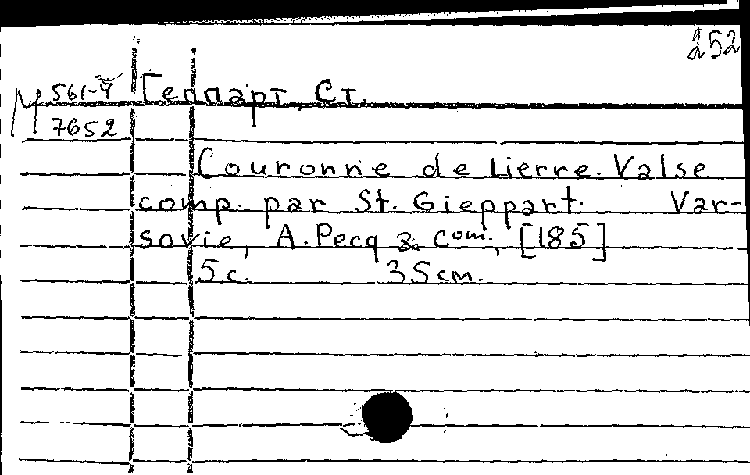 252
М 561-4 Геппарт, Ст.
7652
Couronne de Lierre. Valse
comp. par St. Gieppart. Var-
sovie, A. Pecq & com., [185]
5 c. 35 cm.